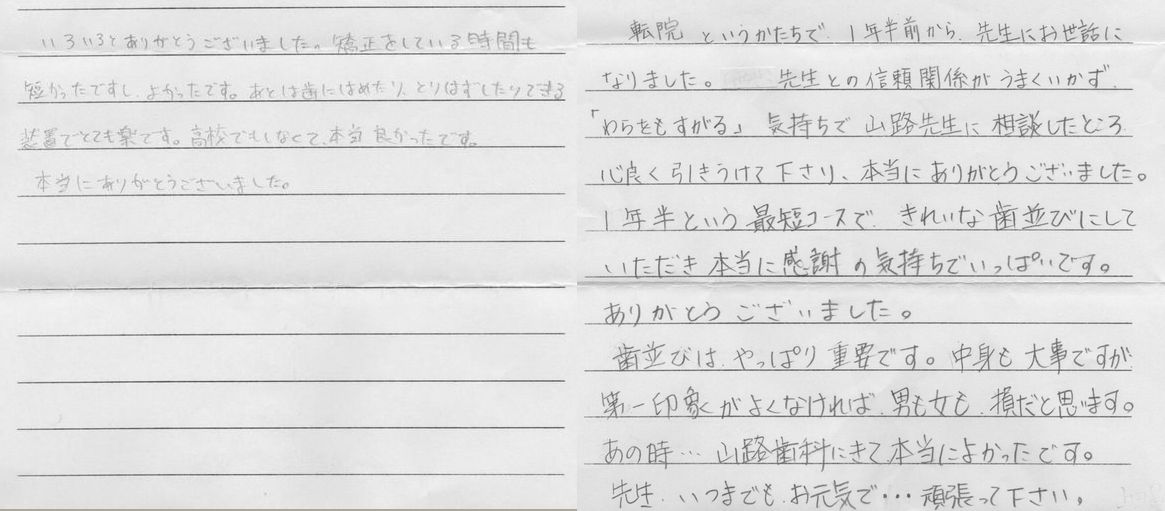 いろいろとありがとうございました。矯正をしている時間も
短かったですし、よかったです。あとは歯にはめたり、とりはずしたりできる
装置でとても楽です。高校でもしなくて、本当良かったです。
本当にありがとうございました。
転院 というかたちで、1年半前から、先生にお世話に
なりました。 先生との信頼関係がうまくいかず、
「わらをもすがる」気持ちで 山路先生に 相談したところ
心良く引きうけて下さり、本当にありがとうございました。
1年半という最短コースで、きれいな歯並びにして
いただき 本当に感謝の気持ちでいっぱいです。
ありがとうございました。
歯並びは、やっぱり重要です。中身も大事ですが
第一印象がよくなければ、男も女も、損だと思います。
あの時… 山路歯科にきて、本当によかったです。
先生、いつまでも、お元気で・・・頑張って下さい。